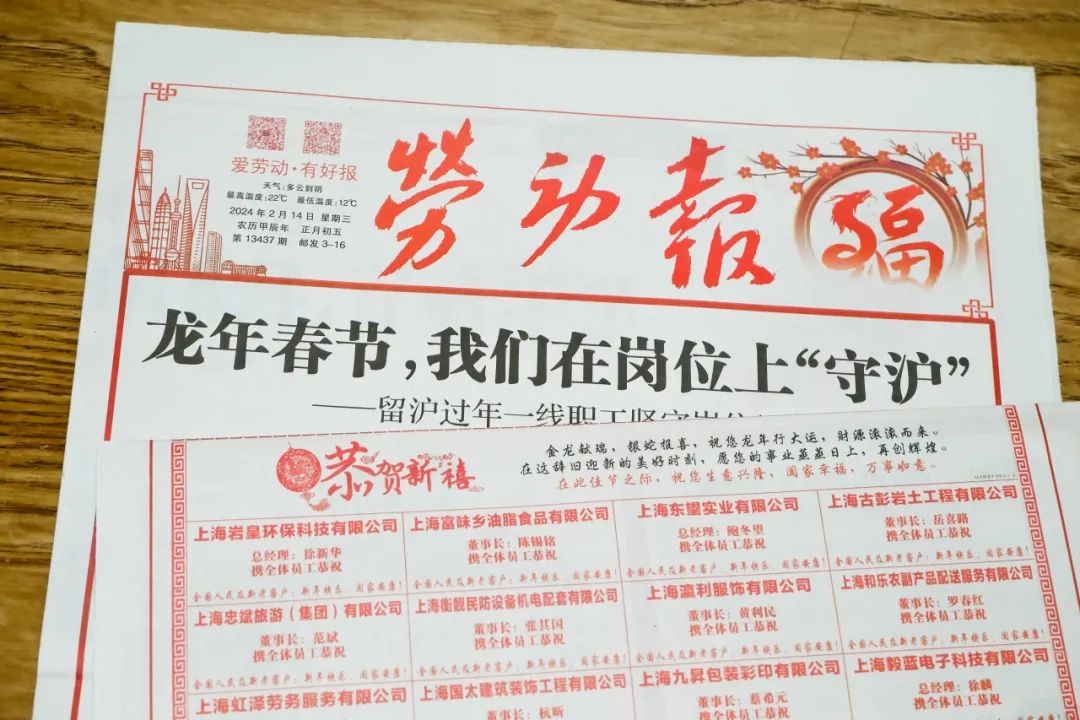 爱劳动·有好报
天气:多云到阴
最高温度:22℃ 最低温度:12℃
2024年2月14日 星期三
农历甲辰年 正月初五
第13437期 邮发3-16
勞动報
福
龙年春节,我们在岗位上“守沪”
——留沪过年一线职工坚守岗位
恭贺新禧
金龙献瑞,银蛇报喜,祝您龙年行大运,财源滚滚而来。
在这辞旧迎新的美好时刻,愿您的事业蒸蒸日上,再创辉煌。
在此佳节之际,祝您生意兴隆,阖家幸福,万事如意。
上海岩皇环保科技有限公司
总经理:徐新华
携全体员工恭祝
全国人民及新老客户:新年快乐、阖家安康!
上海富味乡油脂食品有限公司
董事长:陈锡铭
携全体员工恭祝
全国人民及新老客户:新年快乐、阖家安康!
上海东望实业有限公司
总经理:鲍冬望
携全体员工恭祝
全国人民及新老客户:新年快乐、阖家安康!
上海古彭岩土工程有限公司
董事长:岳喜路
携全体员工恭祝
全国人民及新老客户:新年快乐、阖家安康!
上海忠斌旅游(集团)有限公司
董事长:范斌
携全体员工恭祝
全国人民及新老客户:新年快乐、阖家安康!
上海衡靓民防设备机电配套有限公司
董事长:张其国
携全体员工恭祝
全国人民及新老客户:新年快乐、阖家安康!
上海瀛利服饰有限公司
董事长:黄利民
携全体员工恭祝
全国人民及新老客户:新年快乐、阖家安康!
上海和乐农副产品配送服务有限公司
董事长:罗春红
携全体员工恭祝
全国人民及新老客户:新年快乐、阖家安康!
上海虹泽劳务服务有限公司
上海国太建筑装饰工程有限公司
董事长:杭昕
上海九昇包装彩印有限公司
董事长:蔡希元
携全体员工恭祝
上海毅蓝电子科技有限公司
总经理:徐麟
携全体员工恭祝